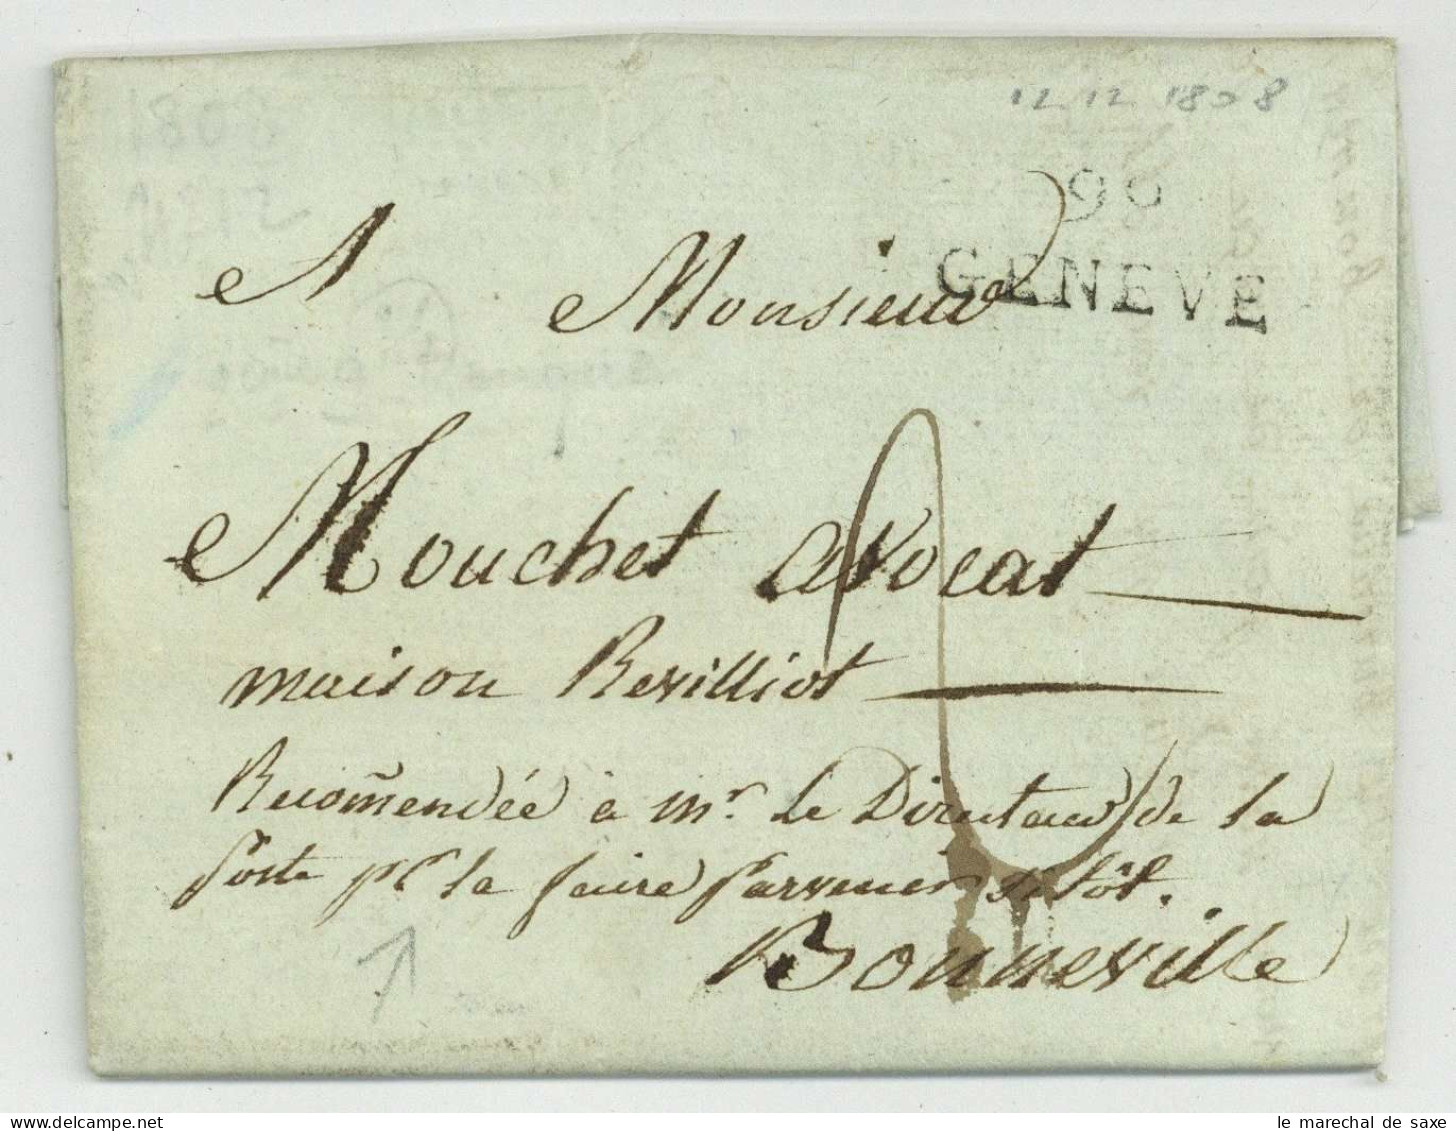 12 12 1808
99
GENEVE
A Monsieur
Mouchet avocat
maison Revilliot
Recom̃endée à mr. le Directeur de la
Poste pr la faire parvenir si tôt.
Bonneville
le marechal de saxe